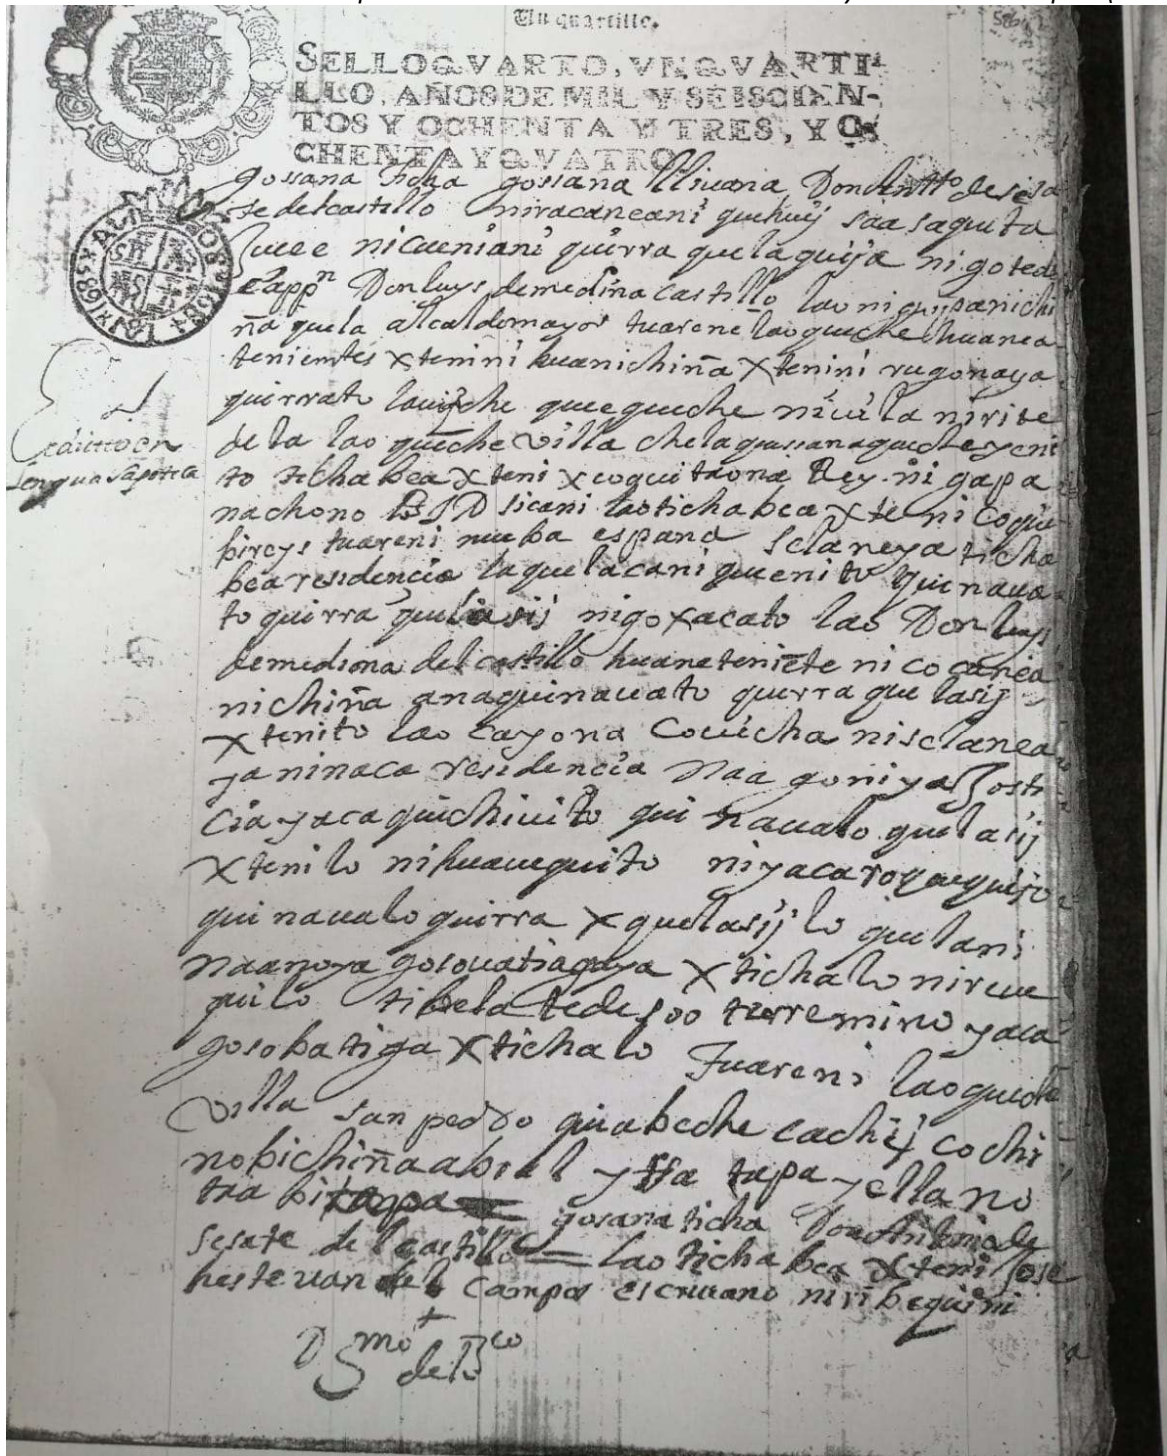 Un quartillo.
SELLO QVARTO, VN QVARTI-
LLO, AÑOS DE MIL Y SEISCIEN-
TOS Y OCHENTA Y TRES, Y O-
CHENTA Y QVATRO
gossana ticha gossana lliuana Don Antto de sesa
te del castillo niracaneani quehuij saa saquita
Juee nicueniani quirra quelaquija nigotede
Cappn Don luys de medina Castillo lao ni quipanichi
ña quela alcaldemayor tuarene lao queche huanea
tenientes xtenini huanichiña xtenini rugonaya
quirrato lauische quequeche niuila nirite
de la lao queche villa chela gussanagueche yeni
Edictto en
lengua Sapoteca
to tichabea xteni xcoquitaona Rey. ni gapa
nachono sicani lao tichabea xteni coque
bireys tuareni nueba espana sclaneya ticha
bea residençia laquelacani quenito quinaua
to quirra quelasij nigoxacato lao Don luys
demediona del castillo huane teniēte ni cocanea
nichiña anaquinauato quirra quelasij
xtenito lao cayona Couicha nisclanea
ya ninaca residencia naa goniya Josti
cia yaca quichiuito qui naualo quelasij
xtenilo nihuauequito niyacaroquequijo
quinaualo quirra xquelasij lo quelani
naanoya gosouatiagaya xtichalo nireue
quilo tibela tedesoo terremino yaca
gosobatiga xtichalo Tuareni lao queche
villa san pedro quiabeche cachij cochi
nobichiña abril ytta tapa yella no
gosana ticha Don Antonio de
sesate del castillo = lao tichabea xteni Jose
hesteuan de campos escriuano niribequini